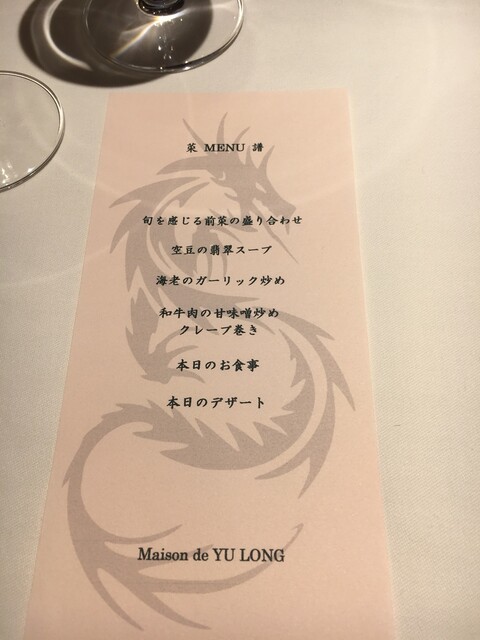 菜 MENU 譜
旬を感じる前菜の盛り合わせ
空豆の翡翠スープ
海老のガーリック炒め
和牛肉の甘味噌炒め
クレープ巻き
本日のお食事
本日のデザート
Maison de YU LONG